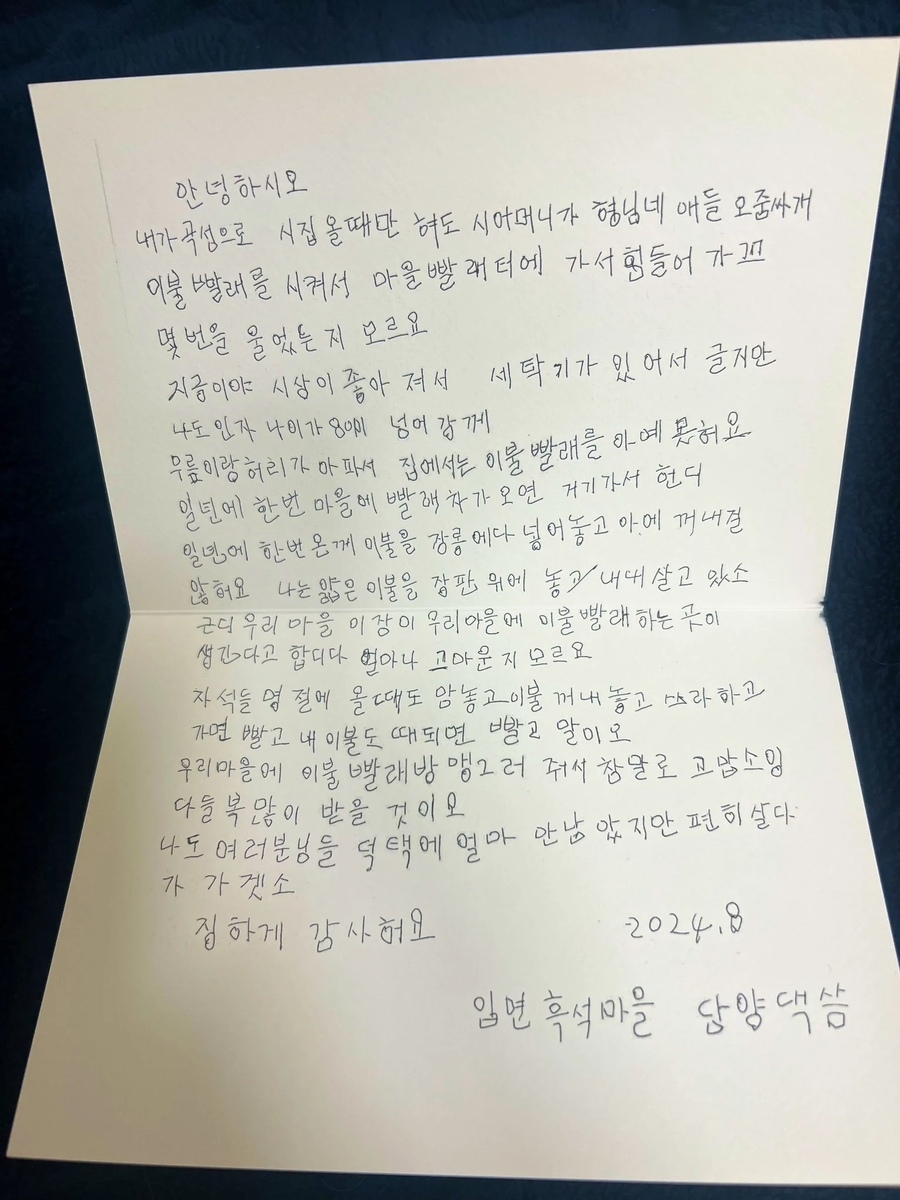 안녕하시오
내가 곡성으로 시집 올때만 혀도 시어머니가 형님네 애들 오줌싸개
이불 빨래를 시켜서 마을빨래터에 가서 힘들어 가꼬
몇번을 울었는지 모르요
지금이야 시상이 좋아져서 세탁기가 있어서 글지만
나도 인자 나이가 80이 넘어강께
무릎이랑 허리가 아파서 집에서는 이불빨래를 아예 못허요
일년에 한번 마을에 빨래차가 오면 거기가서 헌디
일년에 한번 온께 이불을 장롱에다 넣어놓고 아에 꺼내질
않허요 나는 얇은 이불을 장판 위에 놓고 내대 살고 있소
근디 우리 마을 이장이 우리마을에 이불빨래하는 곳이
생긴다고 합디다 얼마나 고마운지 모르요
자석들 명절에 올 때도 맘놓고 이불 꺼내놓고 쓰라하고
가면 빨고 내 이불도 때되면 빨고 말이오
우리마을에 이불빨래방 맹그러 줘서 참말로 고맙소잉
다들 복 많이 받을 것이오
나도 여러분님들 덕택에 얼마 안남았지만 편히 살다
가 가겟소
집하게 감사허요 2024.8
입면 흑석마을 담양댁 씀